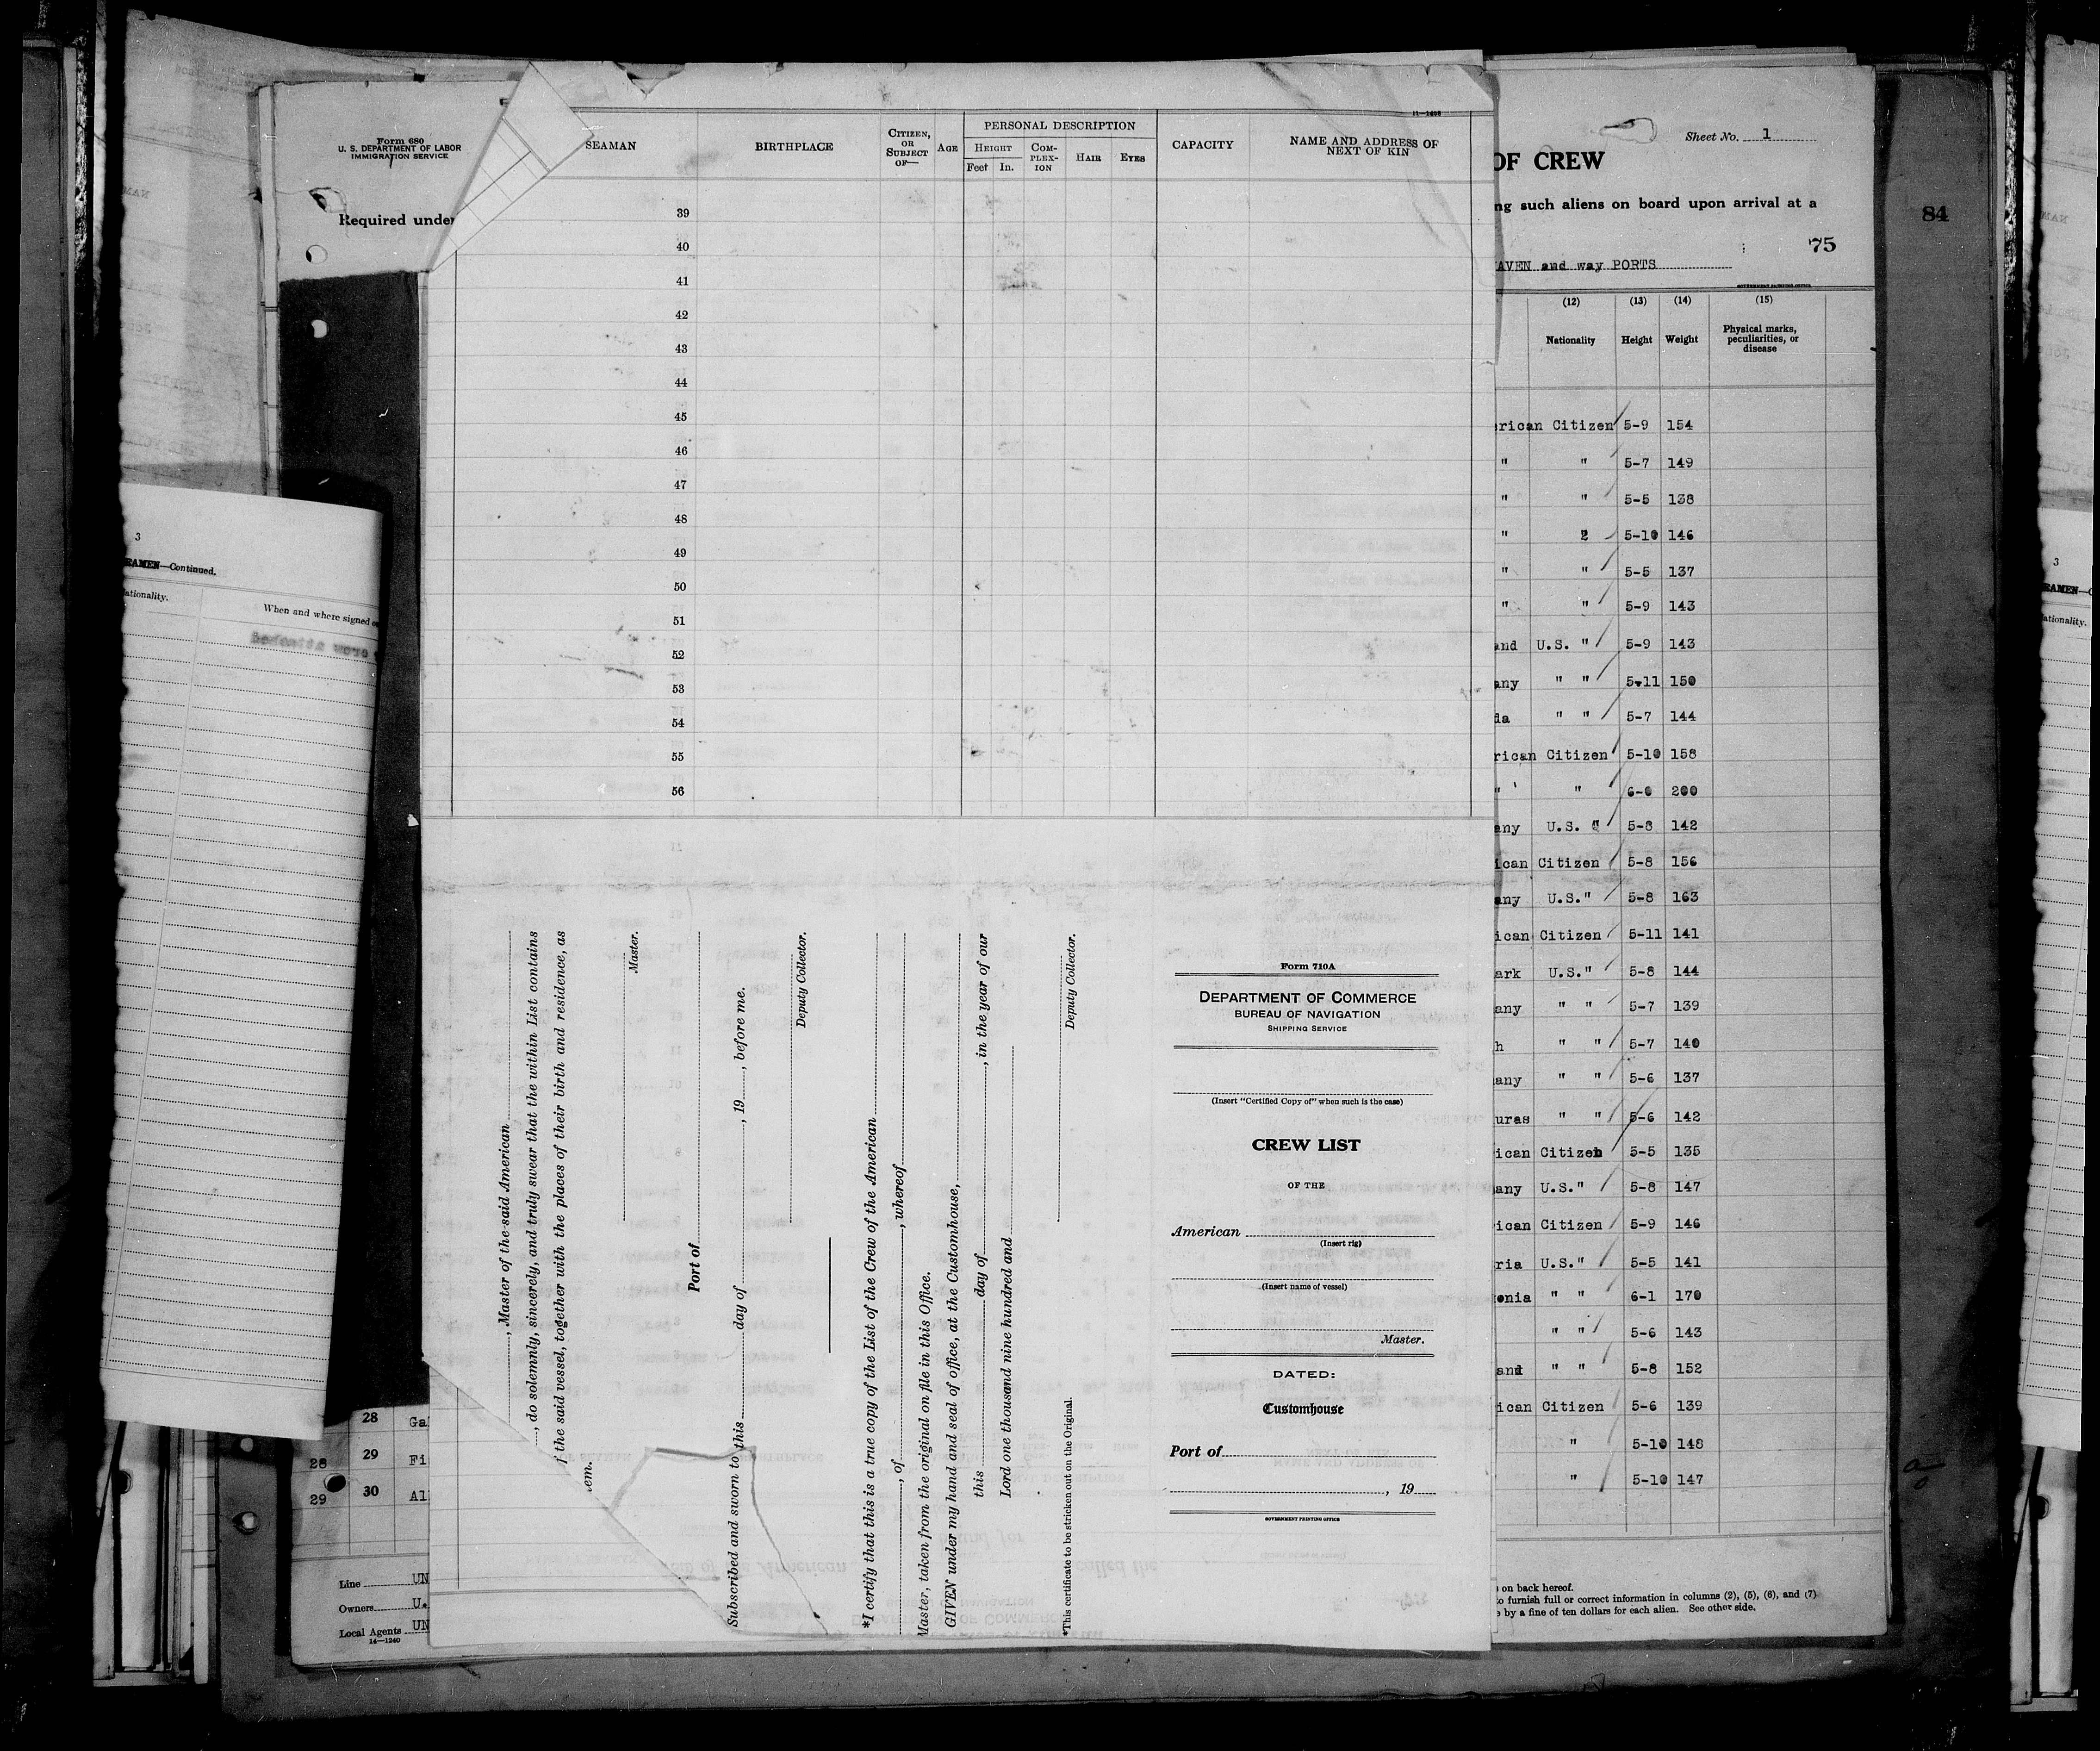 Form 680
U. S. DEPARTMENT OF LABOR
IMMIGRATION SERVICE
Required under
11—1498
SEAMAN
BIRTHPLACE
CITIZEN, OR SUBJECT OF—
AGE
PERSONAL DESCRIPTION
HEIGHT
Feet In.
COM-PLEX-ION
HAIR
EYES
CAPACITY
NAME AND ADDRESS OF NEXT OF KIN
39
40
41
42
43
44
45
46
47
48
49
50
51
52
53
54
55
56
Sheet No. 1
OF CREW
ng such aliens on board upon arrival at a
84
75
AVEN and way PORTS
GOVERNMENT PRINTING OFFICE
(12) (13) (14) (15)
Nationality Height Weight Physical marks, peculiarities, or disease
rican Citizen 5-9 154
" " 5-7 149
" " 5-5 138
" 2 5-10 146
" " 5-5 137
" " 5-9 143
and U.S. " 5-9 143
any " " 5-11 150
da " " 5-7 144
rican Citizen 5-10 158
" ' " 6-0 200
any U.S. " 5-8 142
ican Citizen 5-8 156
any U.S." 5-8 163
ican Citizen 5-11 141
ark U.S." 5-8 144
any " " 5-7 139
h " " 5-7 140
any " " 5-6 137
uras " " 5-6 142
ican Citizen 5-5 135
any U.S." 5-8 147
ican Citizen 5-9 146
ria U.S." 5-5 141
onia " " 6-1 170
" " 5-6 143
and " " 5-8 152
ican Citizen 5-6 139
" 5-10 148
" 5-10 147
on back hereof.
o furnish full or correct information in columns (2), (5), (6), and (7)
e by a fine of ten dollars for each alien. See other side.
3
EAMEN—Continued.
ationality.
When and where signed o
crew attached
28 Ga
28 29 Fi
29 30 Al
Line UN
Owners U.
Local Agents UN
14—1240
, Master of the said American
, do solemnly, sincerely, and truly swear that the within List contains
f the said vessel, together with the places of their birth and residence, as
em.
Master.
Port of
Subscribed and sworn to this day of , 19 , before me.
Deputy Collector.
*I certify that this is a true copy of the List of the Crew of the American
, of , whereof
Master, taken from the original on file in this Office.
GIVEN under my hand and seal of office, at the Customhouse,
this day of , in the year of our
Lord one thousand nine hundred and
Deputy Collector.
*This certificate to be stricken out on the Original.
Form 710A
DEPARTMENT OF COMMERCE
BUREAU OF NAVIGATION
SHIPPING SERVICE
(Insert "Certified Copy of" when such is the case)
CREW LIST
OF THE
American
(Insert rig)
(Insert name of vessel)
Master.
DATED:
Customhouse
Port of
, 19
GOVERNMENT PRINTING OFFICE
3
EAMEN—C
ationality.